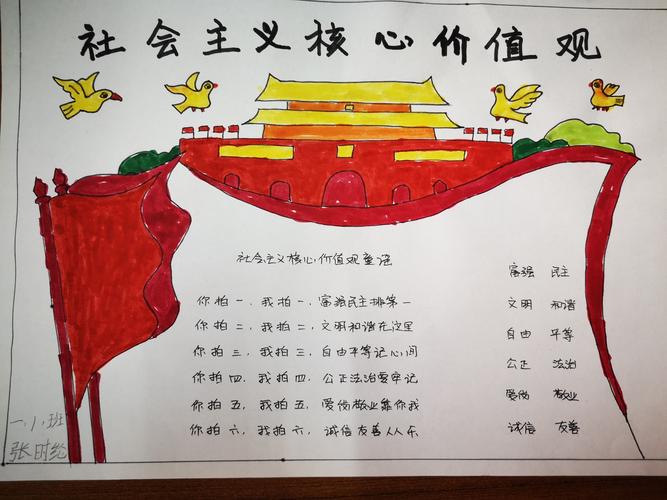 社会主义核心价值观
社会主义核心价值观童谣
你拍一，我拍一，富强民主排第一
你拍二，我拍二，文明和谐在这里
你拍三，我拍三，自由平等记心间
你拍四，我拍四，公正法治要牢记
你拍五，我拍五，爱国敬业靠你我
你拍六，我拍六，诚信友善人人乐
富强 民主
文明 和谐
自由 平等
公正 法治
爱国 敬业
诚信 友善
一.1.班
张时纶